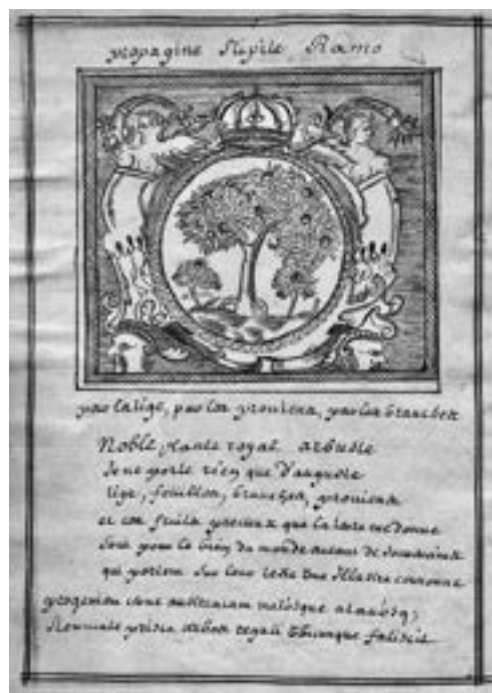 propagine Stipite Ramo
par la tige, par les proviens, par les branches
Noble plante royal arbuste
Je ne porte rien que d'auguste
tige, feuilles, branches, proviens
et ces fruits precieux que la terre me donne
Sont pour le bien du monde autant de souverains
qui portent sur leur teste une Illustre couronne
progenies
arbos regali